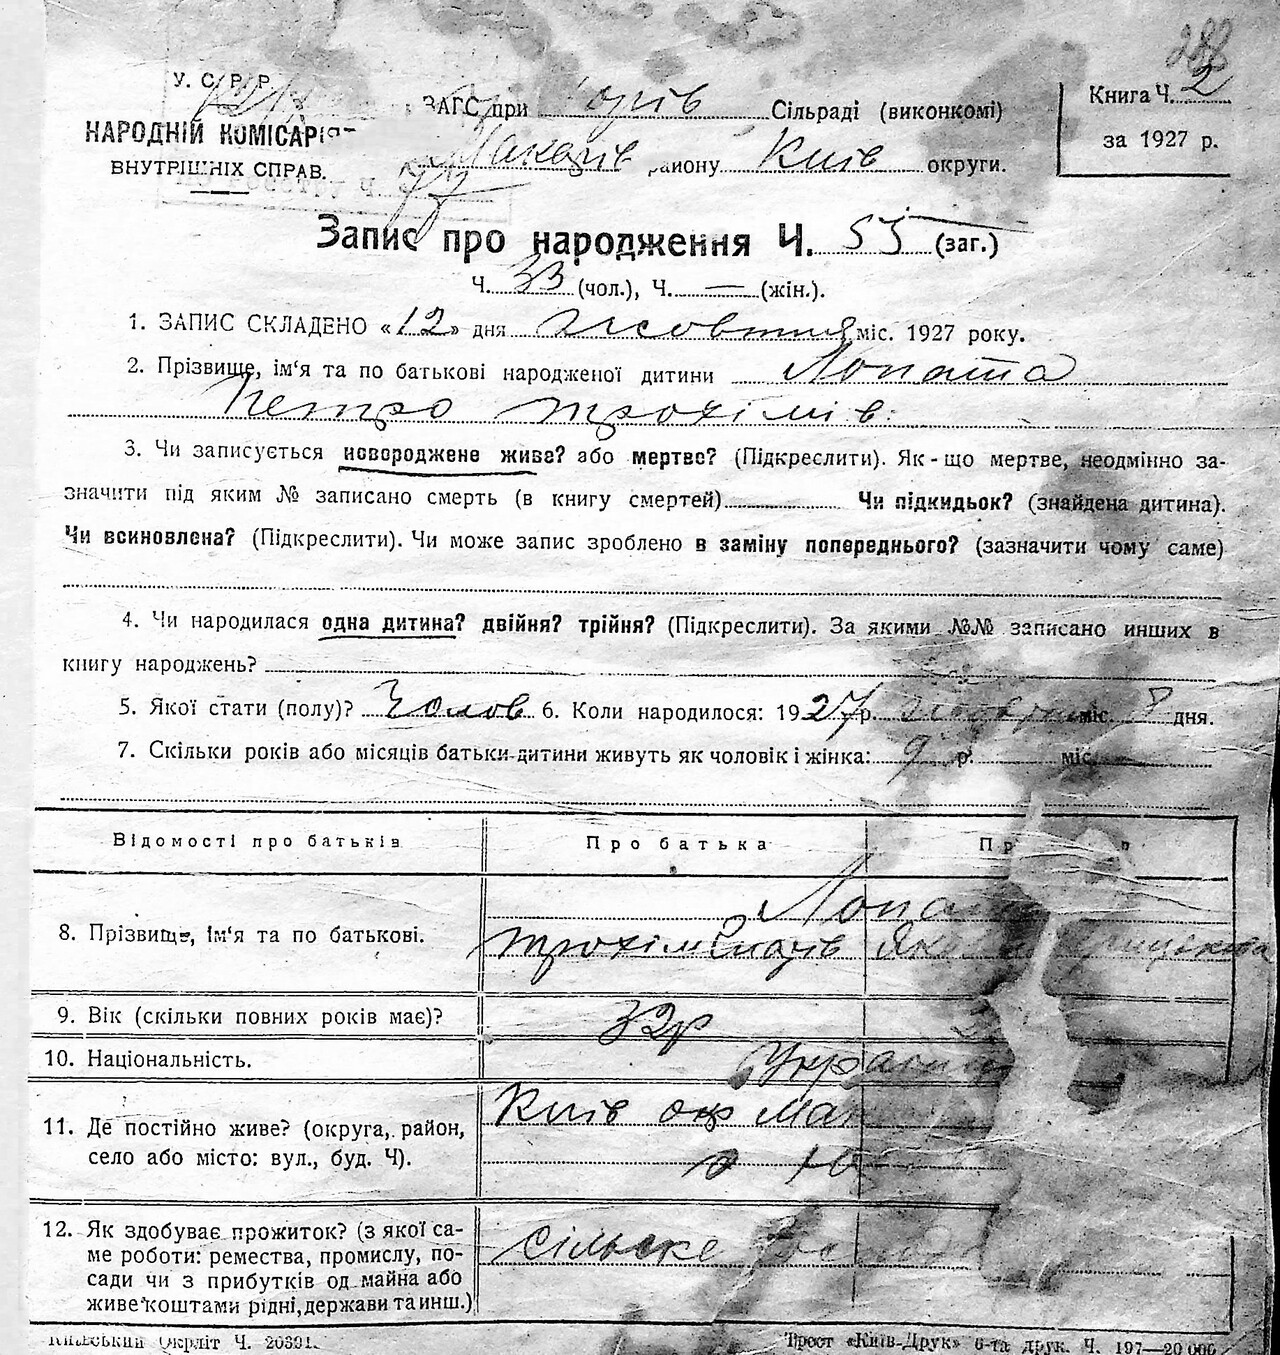 288
У. С. Р. Р.
НАРОДНІЙ КОМІСАР
ВНУТРІШНІХ СПРАВ.
ЗАГС при Сільраді (виконкомі)
Макарів району Київ округи.
Книга Ч. 2
за 1927 р.
Запис про народження Ч. 55 (заг.)
Ч. 33 (чол.), Ч. — (жін.).
1. ЗАПИС СКЛАДЕНО «12» дня Жовтня міс. 1927 року.
2. Прізвище, ім‘я та по батькові народженої дитини Лопата
Петро Трохімів.
3. Чи записується новороджене живе? або мертве? (Підкреслити). Як-що мертве, неодмінно за-
значити під яким № записано смерть (в книгу смертей) Чи підкидьок? (знайдена дитина).
Чи всиновлена? (Підкреслити). Чи може запис зроблено в заміну попереднього? (зазначити чому саме)
4. Чи народилася одна дитина? двійня? трійня? (Підкреслити). За якими №№ записано инших в
книгу народжень?
5. Якої стати (полу)? Чолов 6. Коли народилося: 1927 р. Жовтня міс. 8 дня.
7. Скільки років або місяців батьки дитини живуть як чоловік і жінка: 9 р. міс.
Відомості про батьків Про батька
8. Прізвище, ім‘я та по батькові. Лопа
Трохім
9. Вік (скільки повних років має)? 32р
10. Національність. Украін
11. Де постійно живе? (округа, район, Київ окр Мак
село або місто: вул., буд. Ч).
12. Як здобуває прожиток? (з якої са- Сільске
ме роботи: ремества, промислу, по-
сади чи з прибутків од майна або
живе коштами рідні, держави та инш.)
Київський Окрліт Ч. 20391. Трест «Київ-Друк» 6-та друк. Ч. 197—20.000